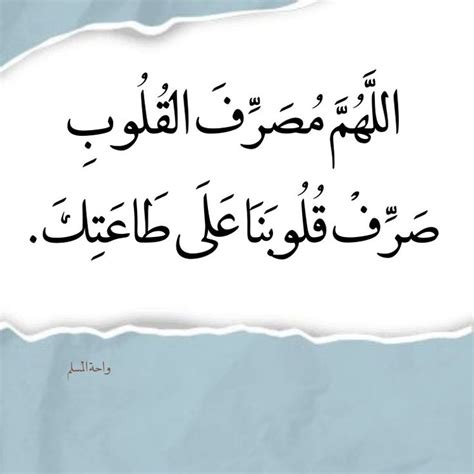 اللَّهُمَّ مُصَرِّفَ القُلُوبِ
صَرِّفْ قُلُوبَنَا عَلَى طَاعَتِكَ.
واحة المسلم